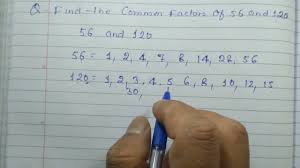 Q Find the Common Factors of 56 and 120
56 and 120
56 = 1, 2, 4, 7, 8, 14, 28, 56
120 = 1, 2, 3, 4, 5 6, 8, 10, 12, 15
20,